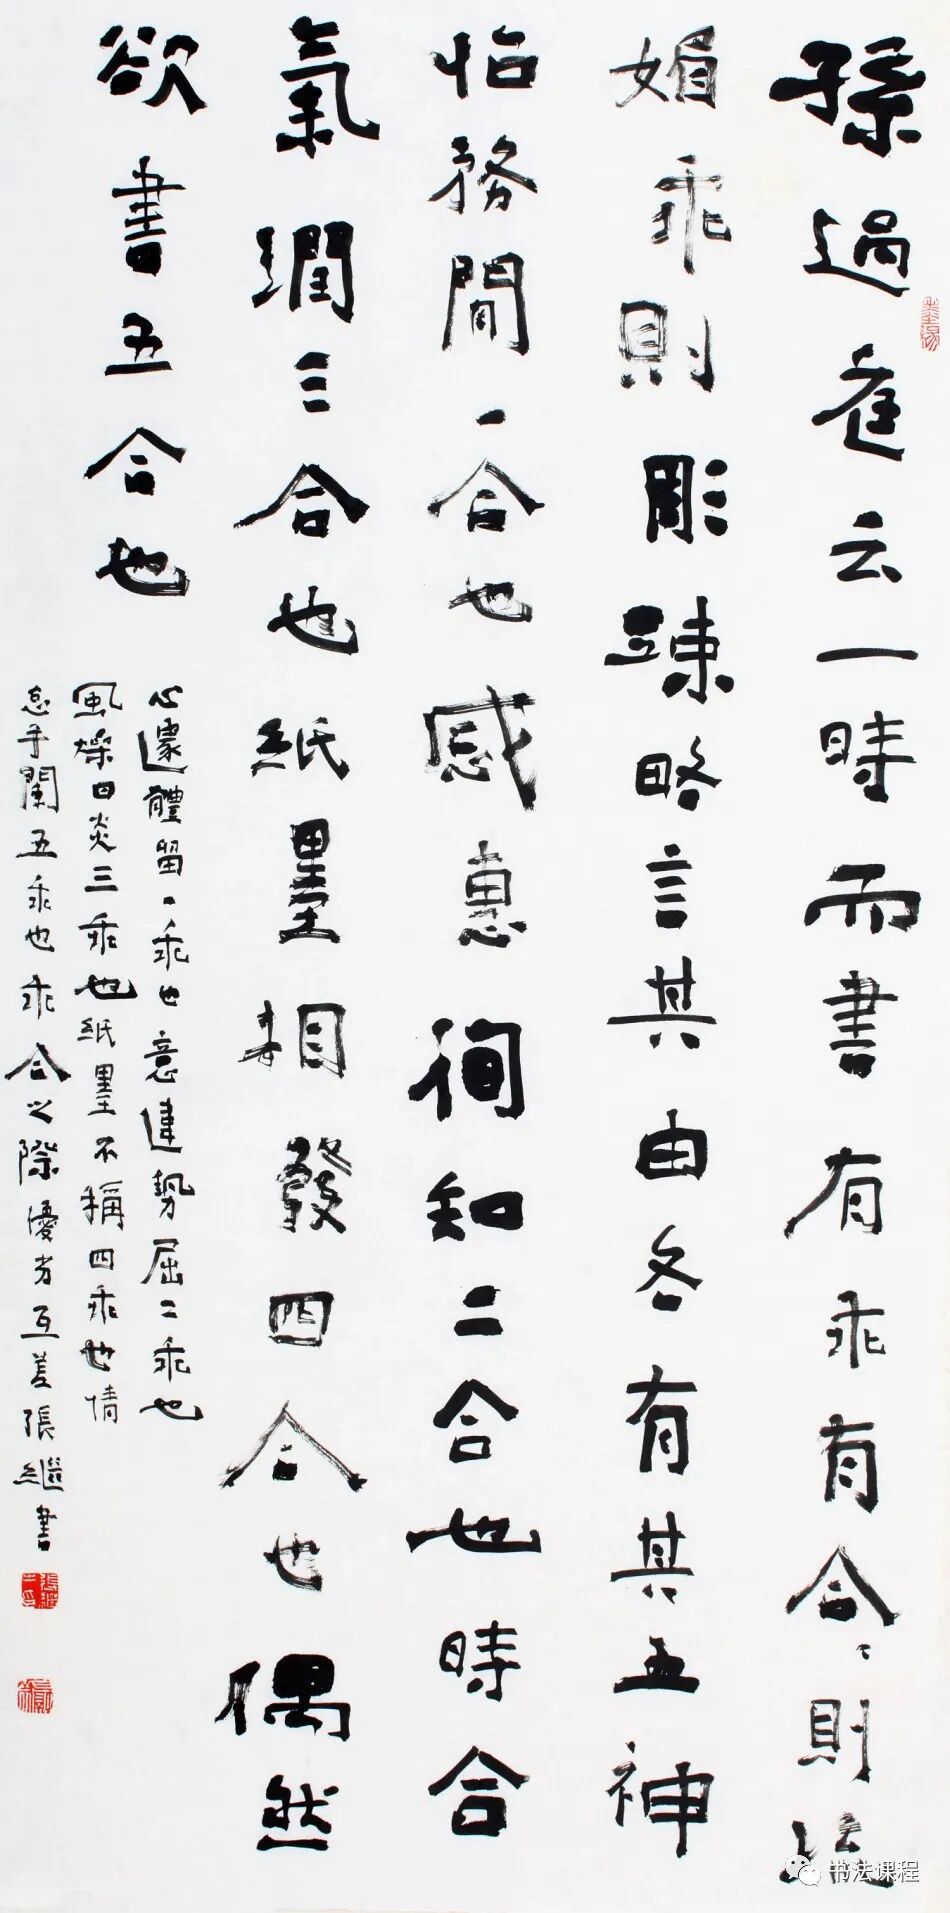 孫過庭云一時而書有乖有合〻則流
媚乖則彫踈略言其由各有其五神
怡務閒一合也感惠徇知二合也時合
氣潤三合也紙墨相發四合也偶然
欲書五合也
心遽體留一乖也意違勢屈二乖也
風燥日炎三乖也紙墨不稱四乖也情
怠手闌五乖也乖合之際優劣互差張繼書
书法课程